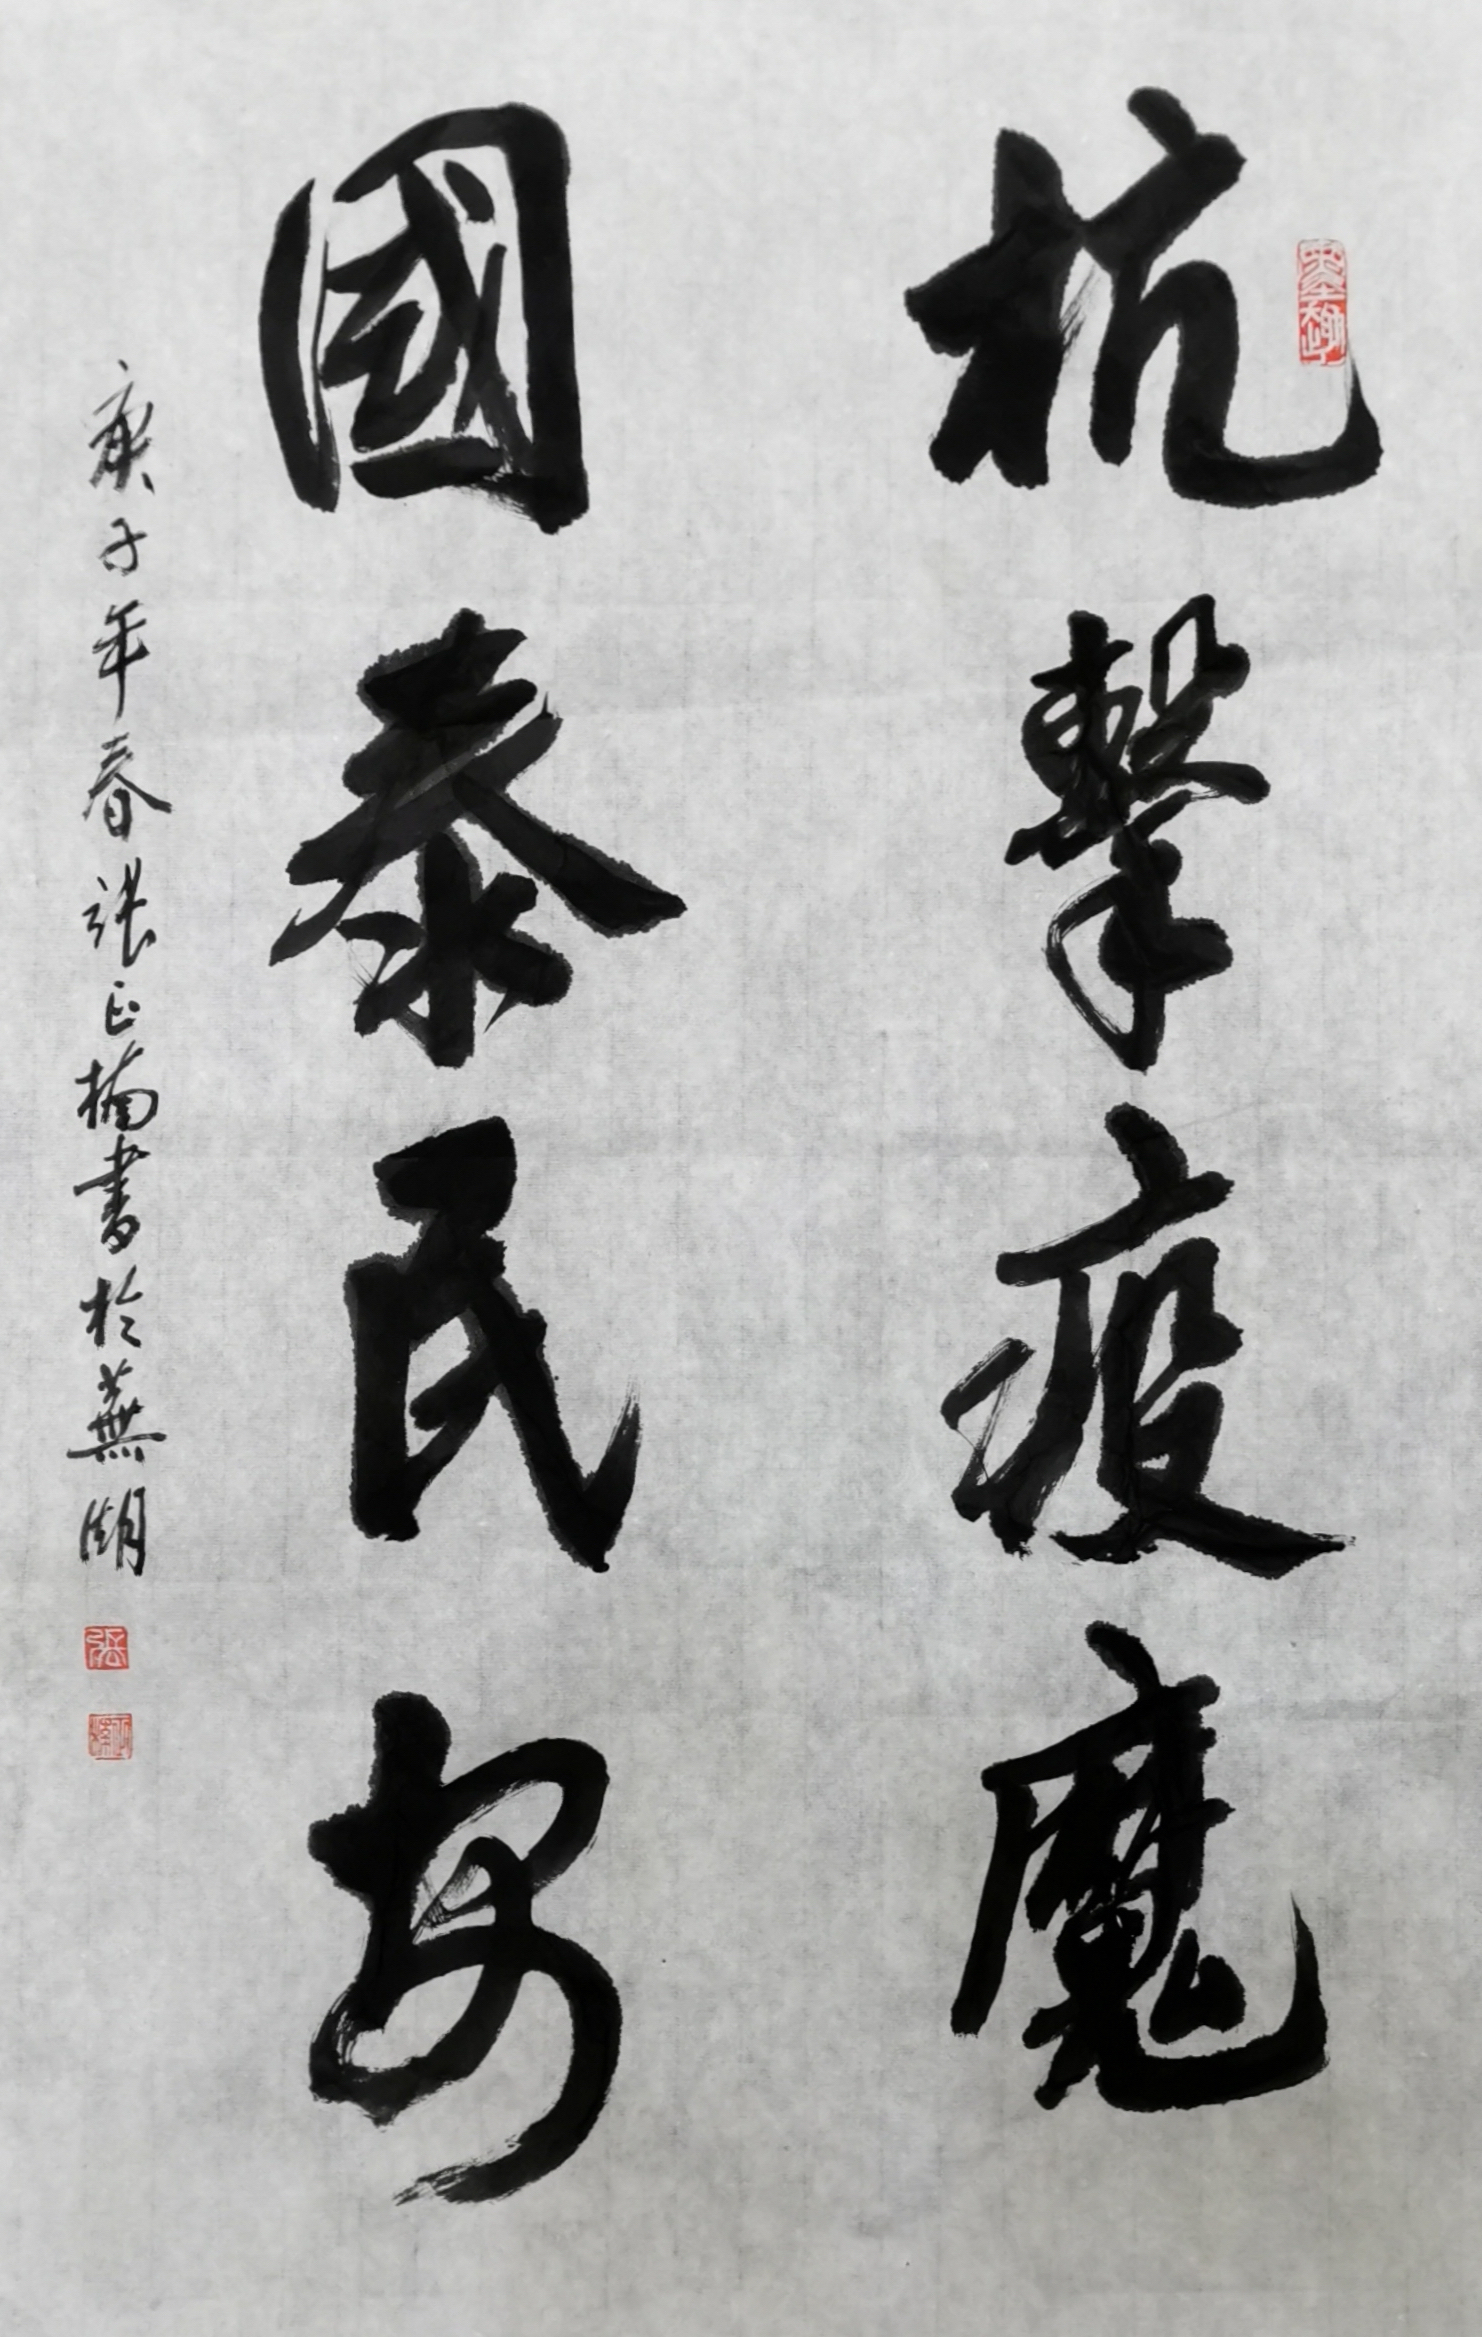 抗擊疫魔
國泰民安
庚子年春張正楠書於蕪湖
墨趣
張